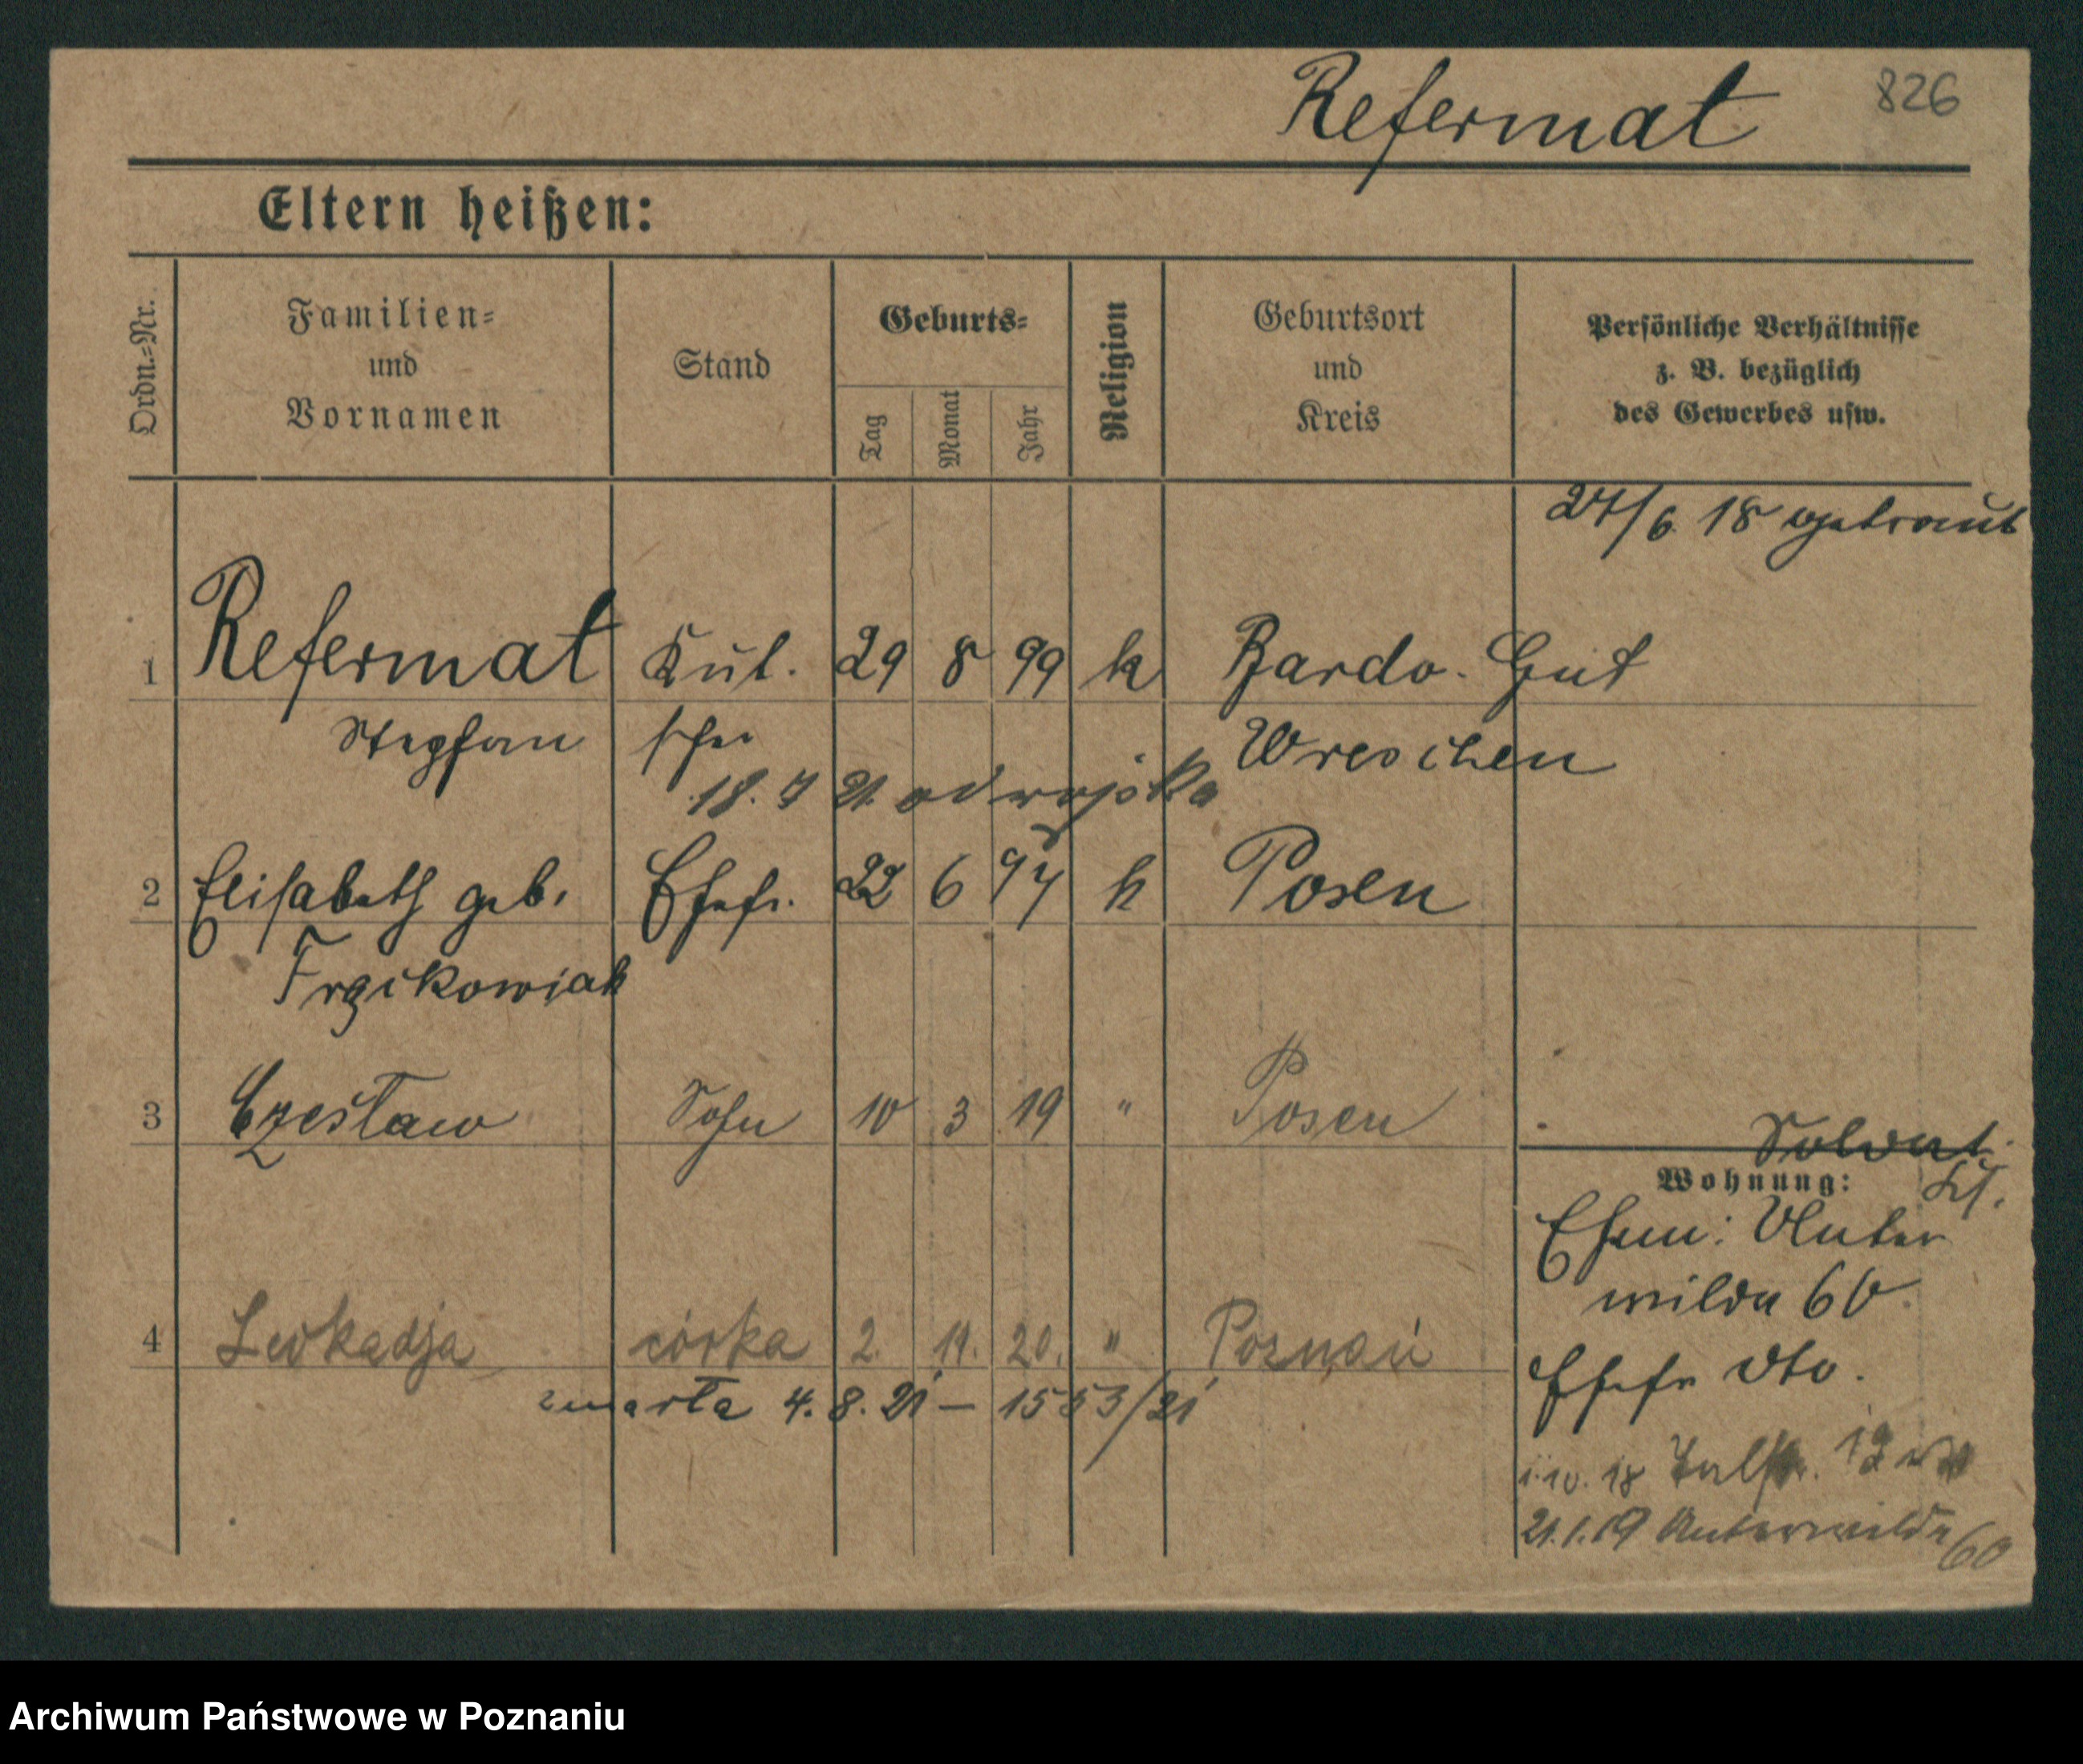 Refermat
826
Eltern heißen:
Ordn.=Nr.
Familien=
und
Vornamen
Stand
Geburts=
Tag
Monat
Jahr
Religion
Geburtsort
und
Kreis
Persönliche Verhältnisse
z. B. bezüglich
des Gewerbes usw.
24/6 18 getraut
1 Refermat Kut. 29 8 99 k Bardo. Gut
Stephan scher Wreschen
18. 7 21. od wojska
2 Elisabeth geb. Ehefr. 22 6 97 k Posen
Frąckowiak
3 Czesław Sohn 10 3 19 " Posen
Soldat
Wohnung:
Ehem: Unter
wilda 60.
4 Leokadja córka 2. 11. 20. " Poznań
Ehefr dto.
zmarła 4. 8. 21 — 1553/21
21.1.19 Unterwilda 60